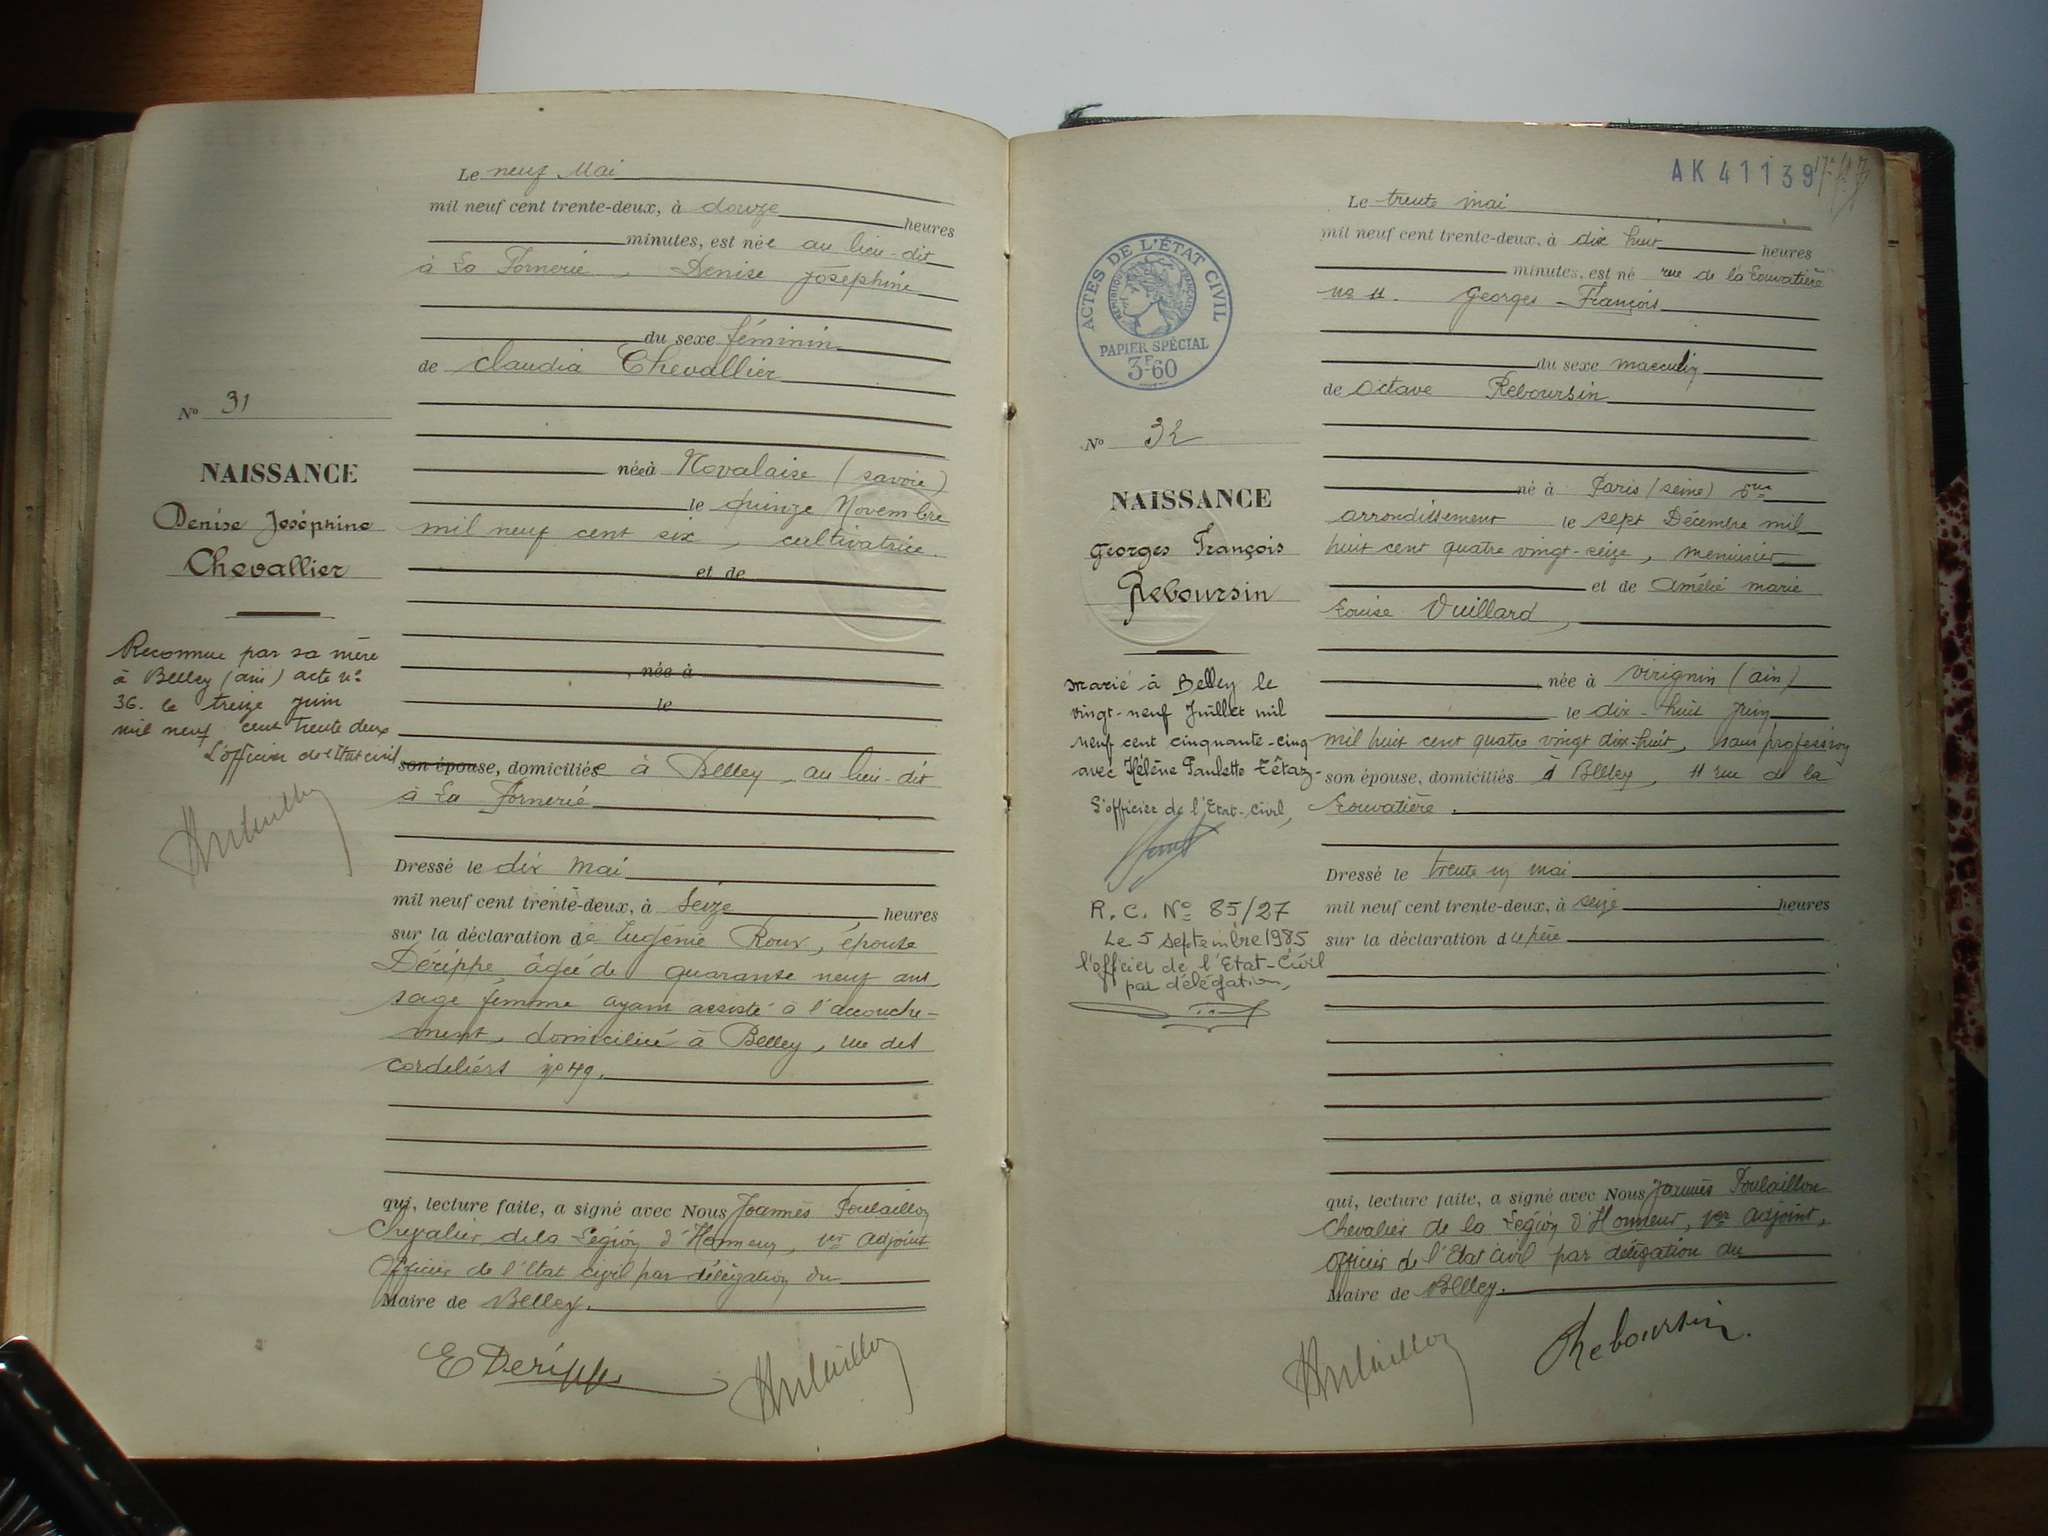 Le neuf Mai
mil neuf cent trente-deux, à douze heures
minutes, est née au lieu-dit
à La Fornerie, Denise Joséphine
du sexe féminin
de Claudia Chevallier
née à Novalaise (Savoie)
le quinze Novembre
mil neuf cent six, cultivatrice.
et de
née à
le
son épouse, domiciliée à Belley, au lieu-dit
à La Fornerie
Dressé le dix Mai
mil neuf cent trente-deux, à seize heures
sur la déclaration de Eugénie Roux, épouse
Derippe âgée de quarante neuf ans
sage femme ayant assisté à l'accouche-
ment, domiciliée à Belley, rue des
Cordeliers no 49.
qui, lecture faite, a signé avec Nous Joannès Poulaillon
Chevalier de la Légion d'Honneur, 1er adjoint
Officier de l'Etat civil par délégation du
Maire de Belley.
E Derippe
No 31
NAISSANCE
Denise Joséphine
Chevallier
Reconnue par sa mère
à Belley (ain) acte no
36. le treize juin
mil neuf cent trente deux
L'officier de l'Etat civil
AK 41139
Le trente mai
mil neuf cent trente-deux, à dix huit heures
minutes, est né rue de la Louvatière
no 11. Georges-François
du sexe masculin
de Octave Reboursin
né à Paris (seine) 5me
arrondissement le sept Décembre mil
huit cent quatre vingt-seize, menuisier
et de Amélie marie
Louise Vuillard,
née à Virignin (ain)
le dix-huit juin
mil huit cent quatre vingt dix-huit, sans profession
son épouse, domiciliés à Belley, 11 rue de la
Louvatière.
Dressé le trente un mai
mil neuf cent trente-deux, à seize heures
sur la déclaration du père
qui, lecture faite, a signé avec Nous Joannès Poulaillon
Chevalier de la Légion d'Honneur, 1er adjoint,
officier de l'Etat civil par délégation du
Maire de Belley.
Reboursin.
ACTES DE L'ÉTAT CIVIL
PAPIER SPÉCIAL
3F60
No 32
NAISSANCE
Georges François
Reboursin
marié à Belley le
vingt-neuf Juillet mil
neuf cent cinquante-cinq
avec Hélène Paulette Tétaz-
L'officier de l'Etat-Civil,
R. C. No 85/27
Le 5 septembre 1985
l'officier de l'Etat-Civil
par délégation,